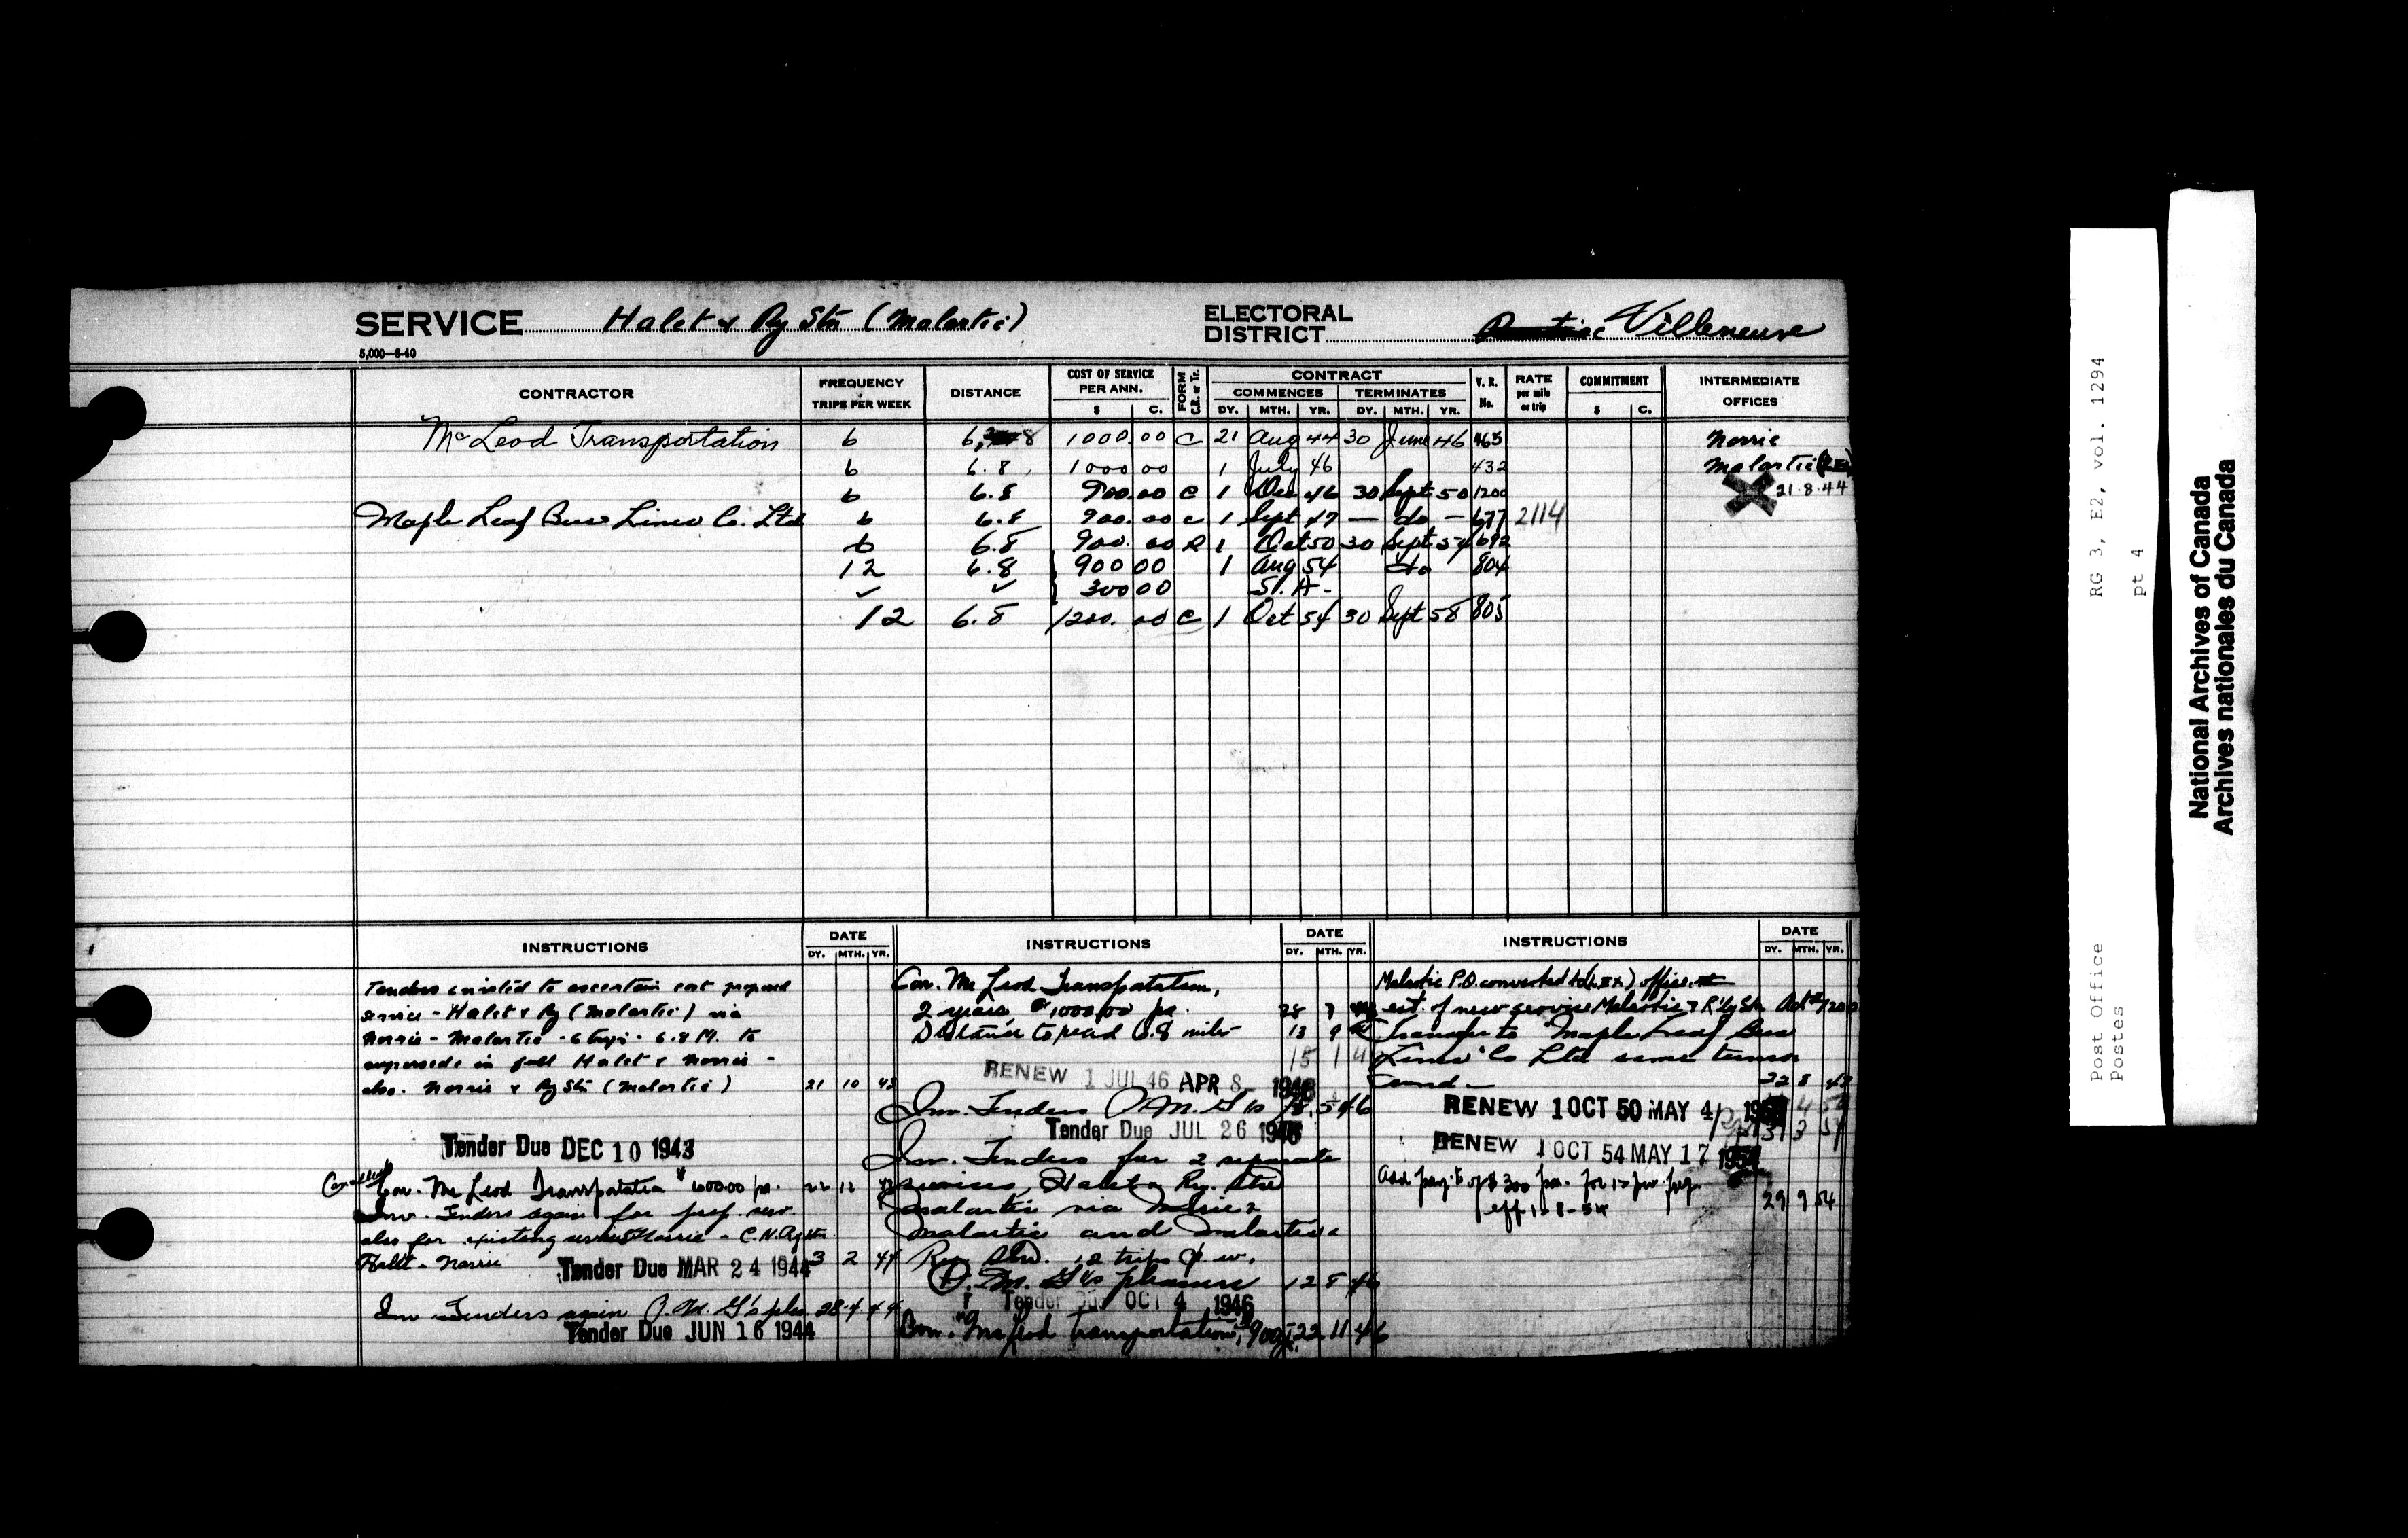 SERVICE Halet & Ry Stn (Malartic)
ELECTORAL DISTRICT Pontiac Villeneuve
5,000—5-40
CONTRACTOR
FREQUENCY TRIPS PER WEEK
DISTANCE
COST OF SERVICE PER ANN. $ C.
FORM C.R. or Tr.
CONTRACT
COMMENCES DY. MTH. YR.
TERMINATES DY. MTH. YR.
V. R. No.
RATE per mile or trip
COMMITMENT $ C.
INTERMEDIATE OFFICES
McLeod Transportation 6 6.8 1000.00 C 21 Aug 44 30 June 46 463 Norrie
6 6.8 1000 00 1 July 46 432 Malartic
6 6.8 900.00 C 1 Dec 46 30 Sept 50 1200 21.8.44
Maple Leaf Bus Lines Co. Ltd 6 6.8 900.00 C 1 Sept 47 — do — 677 2114
6 6.8 900.00 R 1 Oct 50 30 Sept 54 692
12 6.8 900 00 1 Aug 54 do 804
✓ ✓ 300 00 St. A-
12 6.8 1200.00 C 1 Oct 54 30 Sept 58 805
INSTRUCTIONS
DATE
DY. MTH. YR.
Tenders invited to ascertain cost proposed
service - Halet & Ry (Malartic) via
Norrie - Malartic - 6 trips - 6.8 M. to
supersede in full Halet & Norrie -
also. Norrie & Ry Stn (Malartic) 21 10 43
Tender Due DEC 10 1943
Cancelled
Con. McLeod Transportation $600.00 pa. 22 12 43
Inv. Tenders again for prop. serv.
also for existing service Norrie - C.N.Ry Stn
Halet - Norrie 3 2 44
Tender Due MAR 24 1944
Inv Tenders again P.M.G's pls. 28.4.44
Tender Due JUN 16 1944
INSTRUCTIONS
DATE
DY. MTH. YR.
Con. McLeod Transportation,
2 years @ 1000.00 pa. 28 7
Distance to read 6.8 miles 13 9
RENEW 1 JUL 46 APR 8 1946
Inv. Tenders P.M.G's 5 46
Tender Due JUL 26 1946
Inv. Tenders for 2 separate
services, Halet & Ry. Stn
Malartic via Norrie &
Malartic and Malartic &
Ry Stn. 12 trips p.w.
P.M.G's pleasure 12 8 46
Tender Due OCT 4 1946
Con. McLeod Transportation, 900 22 11 46
INSTRUCTIONS
DATE
DY. MTH. YR.
Malartic P.O. converted to (LEX) office
est. of new service Malartic & R'ly Stn.
Transfer to Maple Leaf Bus
Lines Co Ltd same terms
cond — 22 8 47
RENEW 1 OCT 50 MAY 4
RENEW 1 OCT 54 MAY 17 1954
Add pay't of $300 pa. for 12 pw freq.
eff 1-8-54 29 9 54
RG 3, E2, vol. 1294
pt 4
Post Office
Postes
National Archives of Canada
Archives nationales du Canada